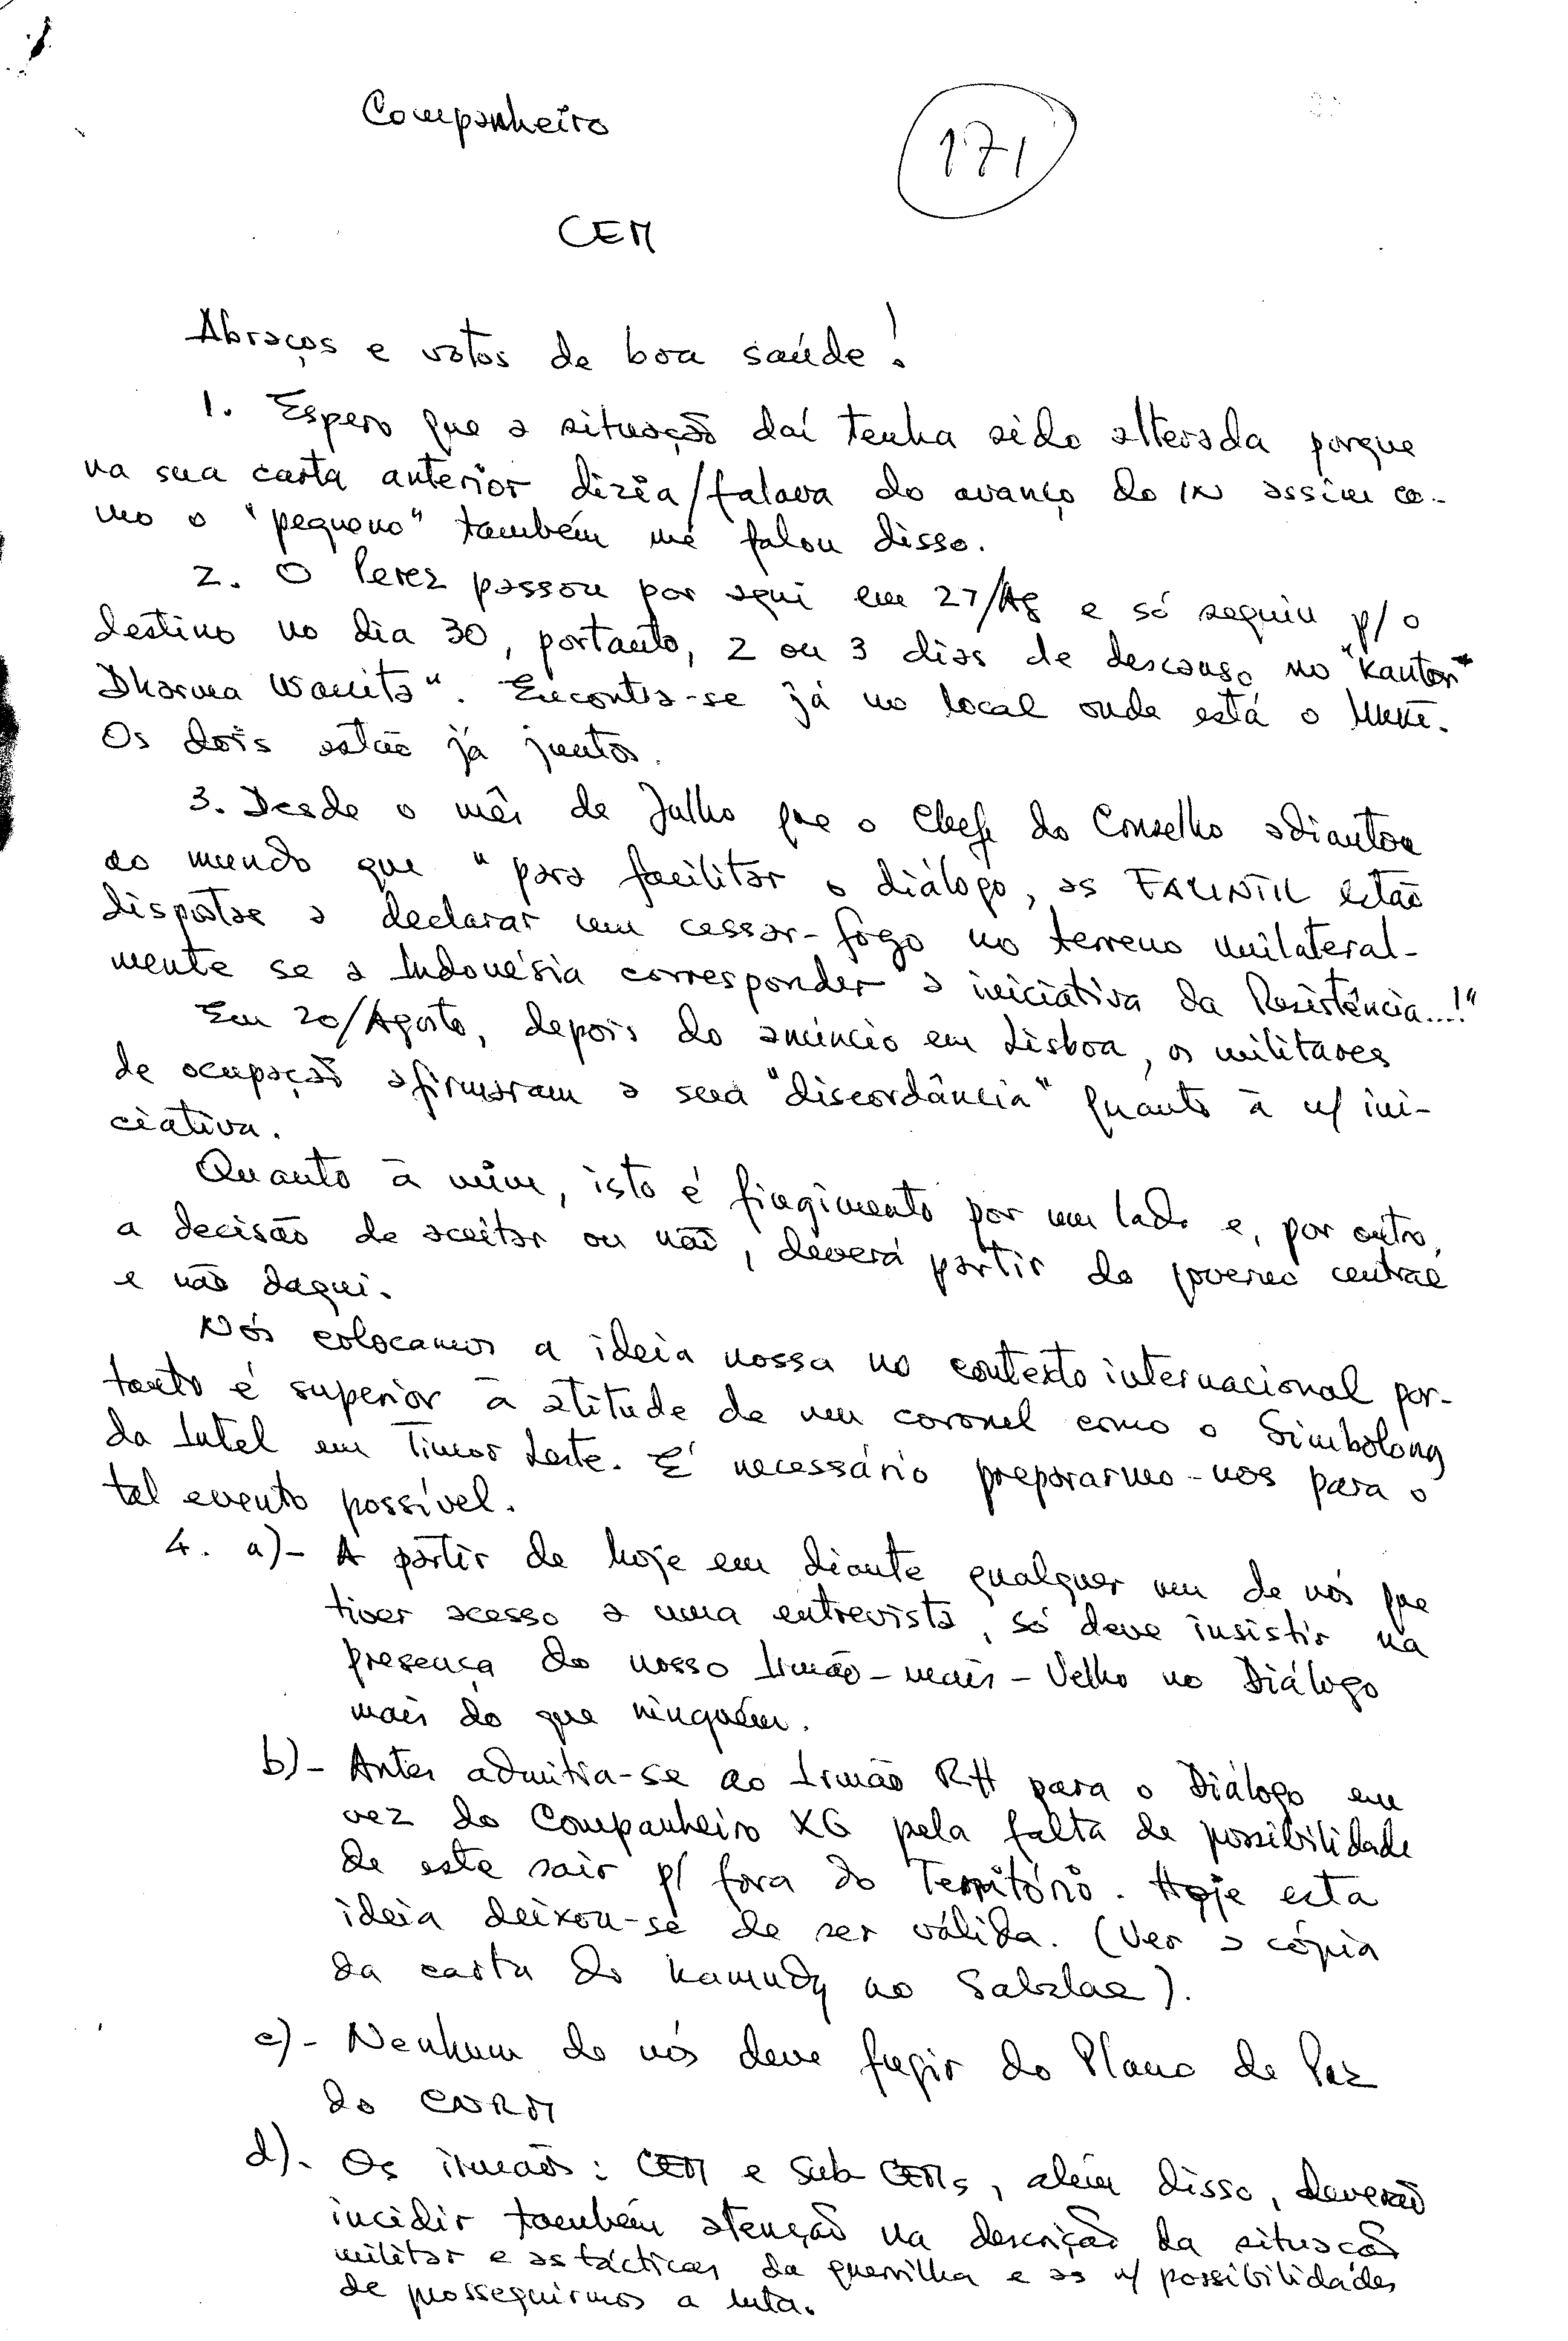 Companheiro
171
CEM
Abraços e votos de boa saúde!
1. Espero que a situação daí tenha sido alterada porque
na sua carta anterior dizia/falava do avanço do IN assim co-
mo o "pequeno" também me falou disso.
2. O Perez passou por aqui em 27/Ag e só seguiu p/ o
destino no dia 30, portanto, 2 ou 3 dias de descanso no "Kantor
Dharma Wanita". Encontra-se já no local onde está o
Os dois estão já juntos.
3. Desde o mês de Julho que o Chefe do Conselho adiantou
ao mundo que "para facilitar o diálogo, as FALINTIL estão
dispostas a declarar um cessar-fogo no terreno unilateral-
mente se a Indonésia corresponder a iniciativa da Resistência...!"
Em 20/Agosto, depois do anúncio em Lisboa, os militares
de ocupação afirmaram a sua "discordância" quanto à n/ ini-
ciativa.
Quanto à mim, isto é fingimento por um lado e, por outro,
a decisão de aceitar ou não, deverá partir do governo central
e não daqui.
Nós colocamos a ideia nossa no contexto internacional por-
tanto é superior à atitude de um coronel como o Simbolong
da Intel em Timor Leste. É necessário prepararmo-nos para o
tal evento possível.
4. a)- A partir de hoje em diante qualquer um de nós que
tiver acesso a uma entrevista, só deve insistir na
presença do nosso Irmão-mais-Velho no Diálogo
mais do que ninguém.
b)- Antes admitia-se ao Irmão RH para o Diálogo em
vez do Companheiro XG pela falta de possibilidade
de este sair p/ fora do Território. Hoje esta
ideia deixou-se de ser válida. (Ver a cópia
da carta do Kamudy ao Sabalae).
c)- Nenhum de nós deve fugir do Plano de Paz
do CNRM
d)- Os irmãos: CEM e Sub CEMs, além disso, deverão
incidir também atenção na descrição da situação
militar e as tácticas da guerrilha e as n/ possibilidades
de prosseguirmos a luta.